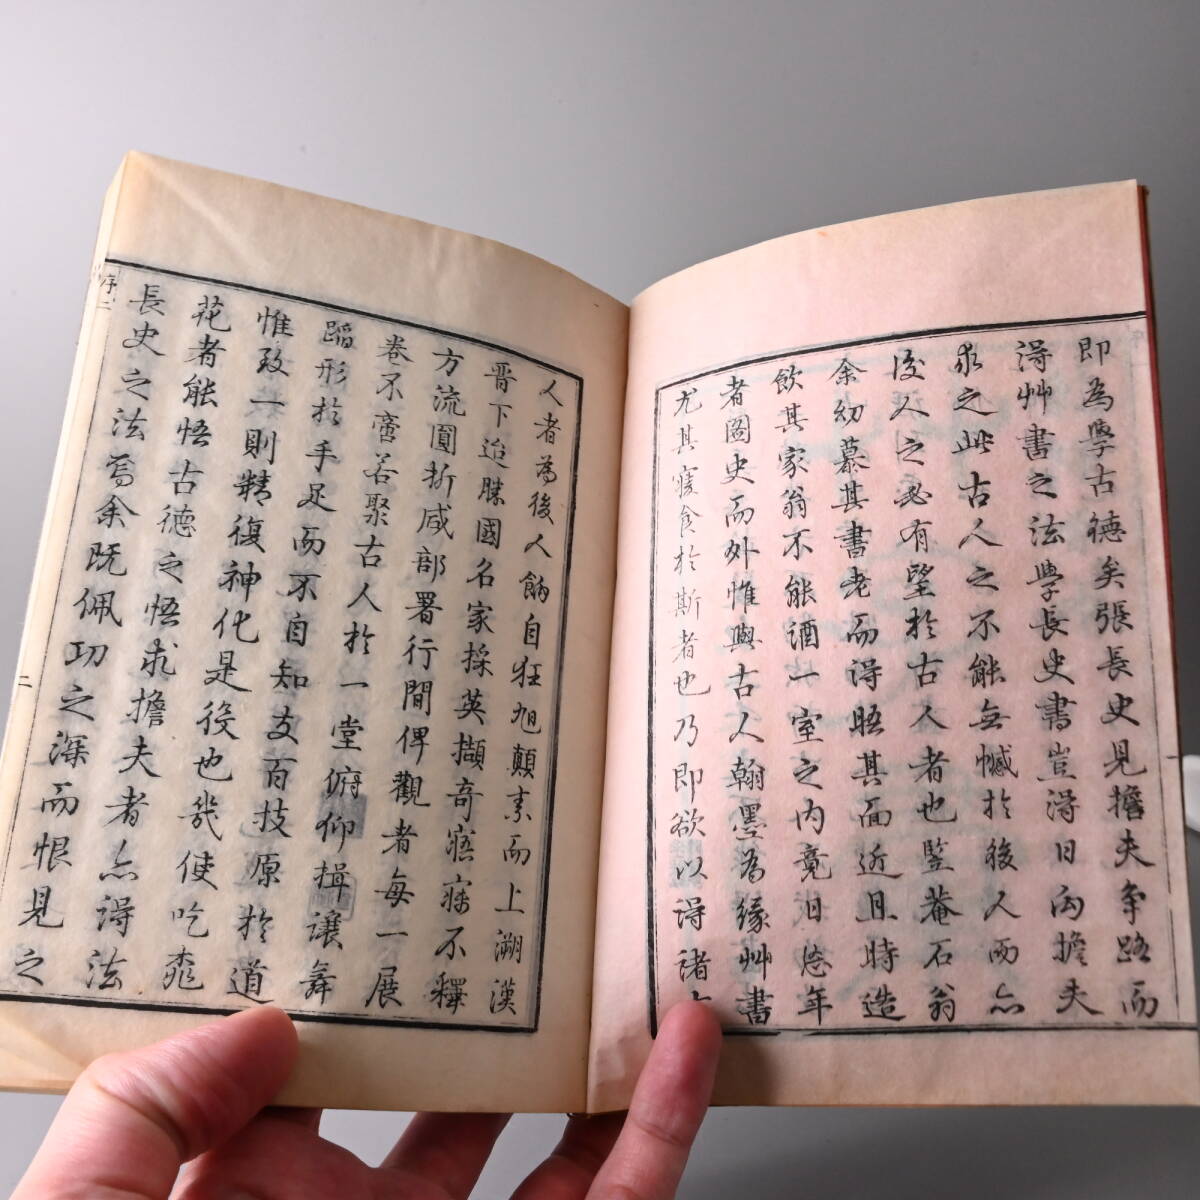 即為學古德矣張長史見擔夫爭路而
得艸書之法學長史書豈得日向擔夫
求之此古人之不能無憾於後人而亦
後人之必有望於古人者也監菴石翁
余幼慕其書老而得晤其面近且時造
飲其家翁不能酒一室之內竟日怹年
者圖史而外惟與古人翰墨為緣艸書
尤其寢食於斯者也乃即欲以得諸
人者為後人餉自狂旭顛素而上溯漢
晉下迨勝國名家採英擷奇寤寐不釋
方流圓折咸部署行間俾觀者每一展
卷不啻若聚古人於一堂俯仰揖讓舞
蹈形於手足而不自知夫百技原於道
惟致一則精復神化是後也幾使吃
花者能悟古德之悟求擔夫者亦得法
長史之法焉余既佩功之深而恨見之
序二
二